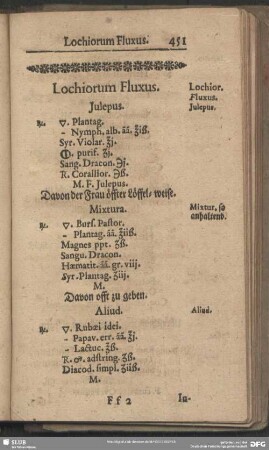 Lochiorum Fluxus. 451
Lochiorum Fluxus.
Lochior.
Fluxus.
Julepus.
Julepus.
℞. 🜄. Plantag.
- Nymph. alb. āā. ℥iß.
Syr. Violar. ℥j.
purif. ʒj.
Sang. Dracon. ℈j.
R. Corallior. ℈ß.
M. F. Julepus.
Davon der Frau öffter Löffel-weise.
Mixtura.
Mixtur, so
anhaltend.
℞. 🜄. Burs. Pastor.
- Plantag. āā. ℥iiß.
Magnes ppt. ʒß.
Sangu. Dracon.
Hæmatit. āā. gr. viij.
Syr. Plantag. ℥iij.
M.
Davon offt zu geben.
Aliud.
Aliud.
℞. 🜄. Rubæi idei.
- Papav. err. āā. ℥j.
- Lactuc. ℥ß.
adstring. ʒß.
Diacod. simpl. ℥iiß.
M.
Ff 2
Iu-
SLUB
DFG